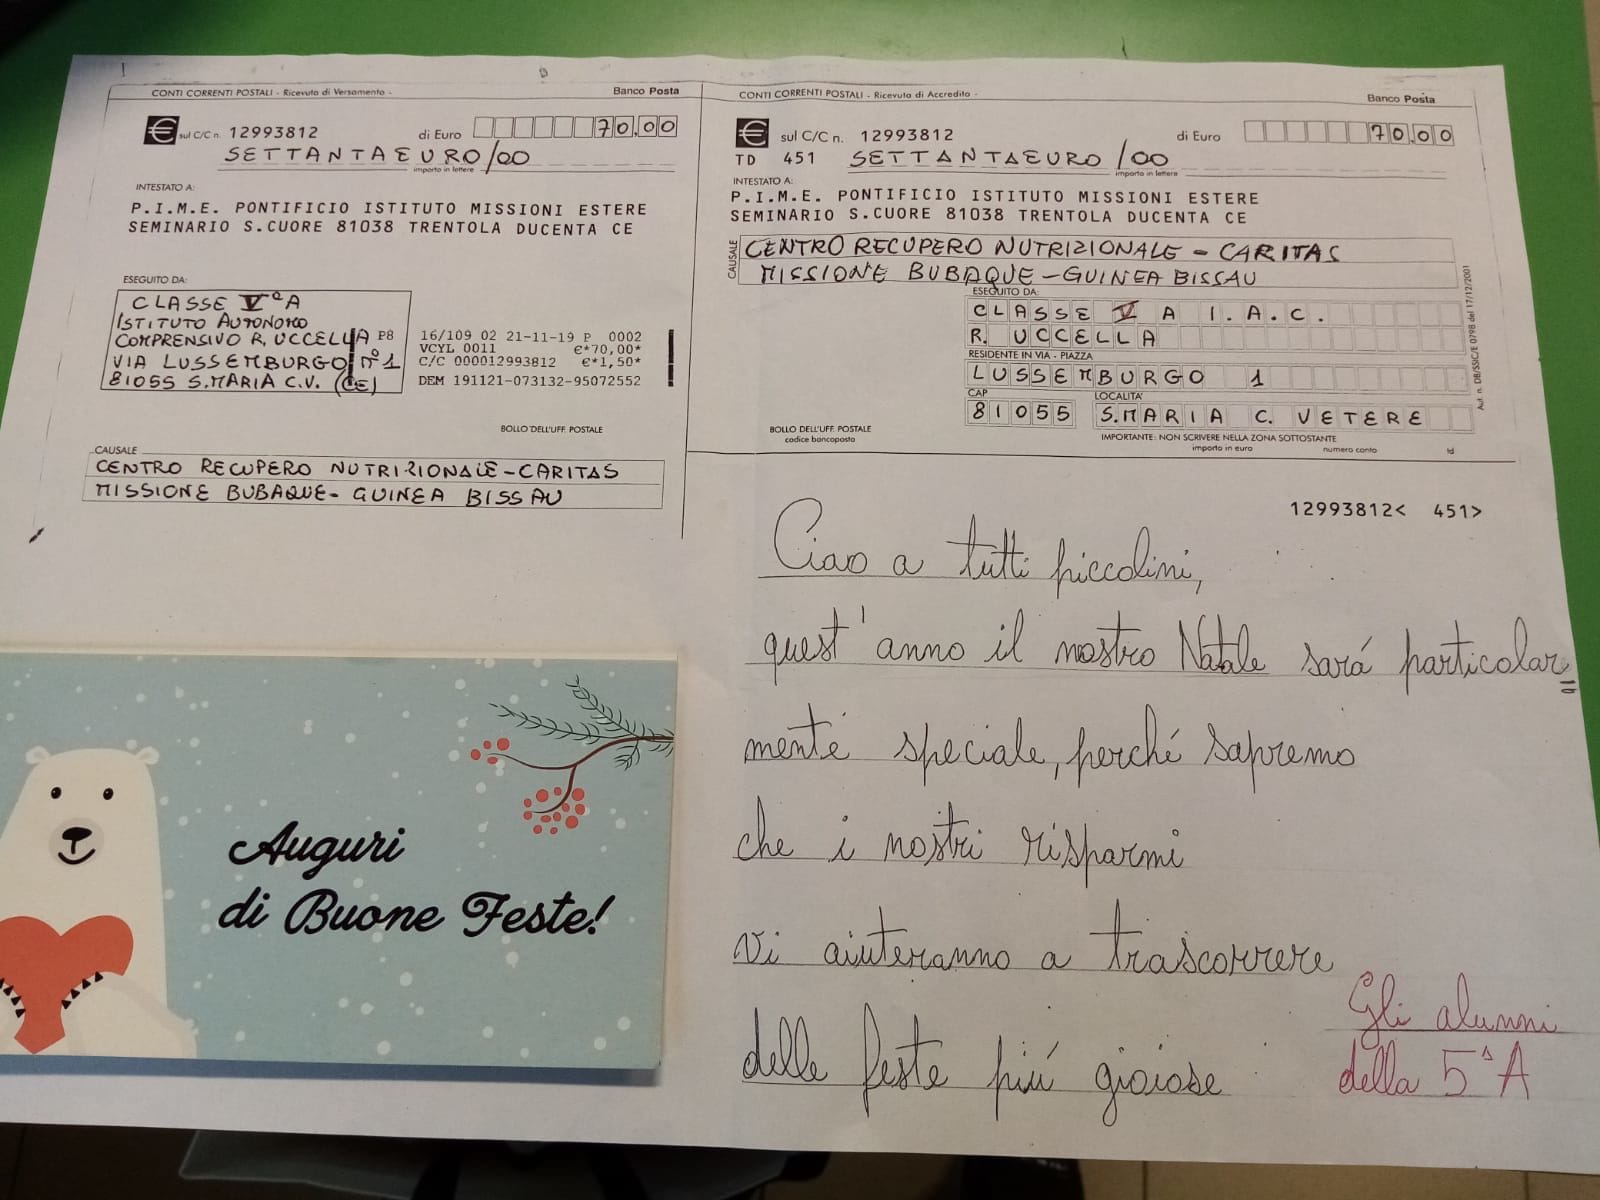 CONTI CORRENTI POSTALI - Ricevuta di Versamento -
Banco Posta
€ sul C/C n. 12993812 di Euro 70,00
SETTANTAEURO/00
importo in lettere
INTESTATO A:
P.I.M.E. PONTIFICIO ISTITUTO MISSIONI ESTERE
SEMINARIO S.CUORE 81038 TRENTOLA DUCENTA CE
ESEGUITO DA:
CLASSE Vª A
ISTITUTO AUTONOMO
COMPRENSIVO R. UCCELLA
VIA LUSSEMBURGO n° 1
81055 S.MARIA C.V. (CE)
P8 16/109 02 21-11-19 P 0002
VCYL 0011 €*70,00*
C/C 000012993812 €*1,50*
DEM 191121-073132-95072552
BOLLO DELL'UFF. POSTALE
CAUSALE
CENTRO RECUPERO NUTRIZIONALE-CARITAS
MISSIONE BUBAQUE- GUINEA BISSAU
CONTI CORRENTI POSTALI - Ricevuta di Accredito -
Banco Posta
€ sul C/C n. 12993812 di Euro 70,00
TD 451 SETTANTAEURO/00
importo in lettere
INTESTATO A:
P.I.M.E. PONTIFICIO ISTITUTO MISSIONI ESTERE
SEMINARIO S.CUORE 81038 TRENTOLA DUCENTA CE
CAUSALE
CENTRO RECUPERO NUTRIZIONALE - CARITAS
MISSIONE BUBAQUE - GUINEA BISSAU
ESEGUITO DA:
CLASSE V A I.A.C.
R. UCCELLA
RESIDENTE IN VIA - PIAZZA
LUSSEMBURGO 1
CAP LOCALITA'
81055 S.MARIA C. VETERE
BOLLO DELL'UFF. POSTALE
codice bancoposta
IMPORTANTE: NON SCRIVERE NELLA ZONA SOTTOSTANTE
importo in euro numero conto td
Aut. n. DB/SSIC/E 0798 del 17/12/2001
12993812< 451>
Ciao a tutti piccolini,
quest'anno il nostro Natale sará particolar=
mente speciale, perché sapremo
che i nostri risparmi
vi aiuteranno a trascorrere
delle feste piú gioiose
Gli alunni
della 5ª A
Auguri
di Buone Feste!